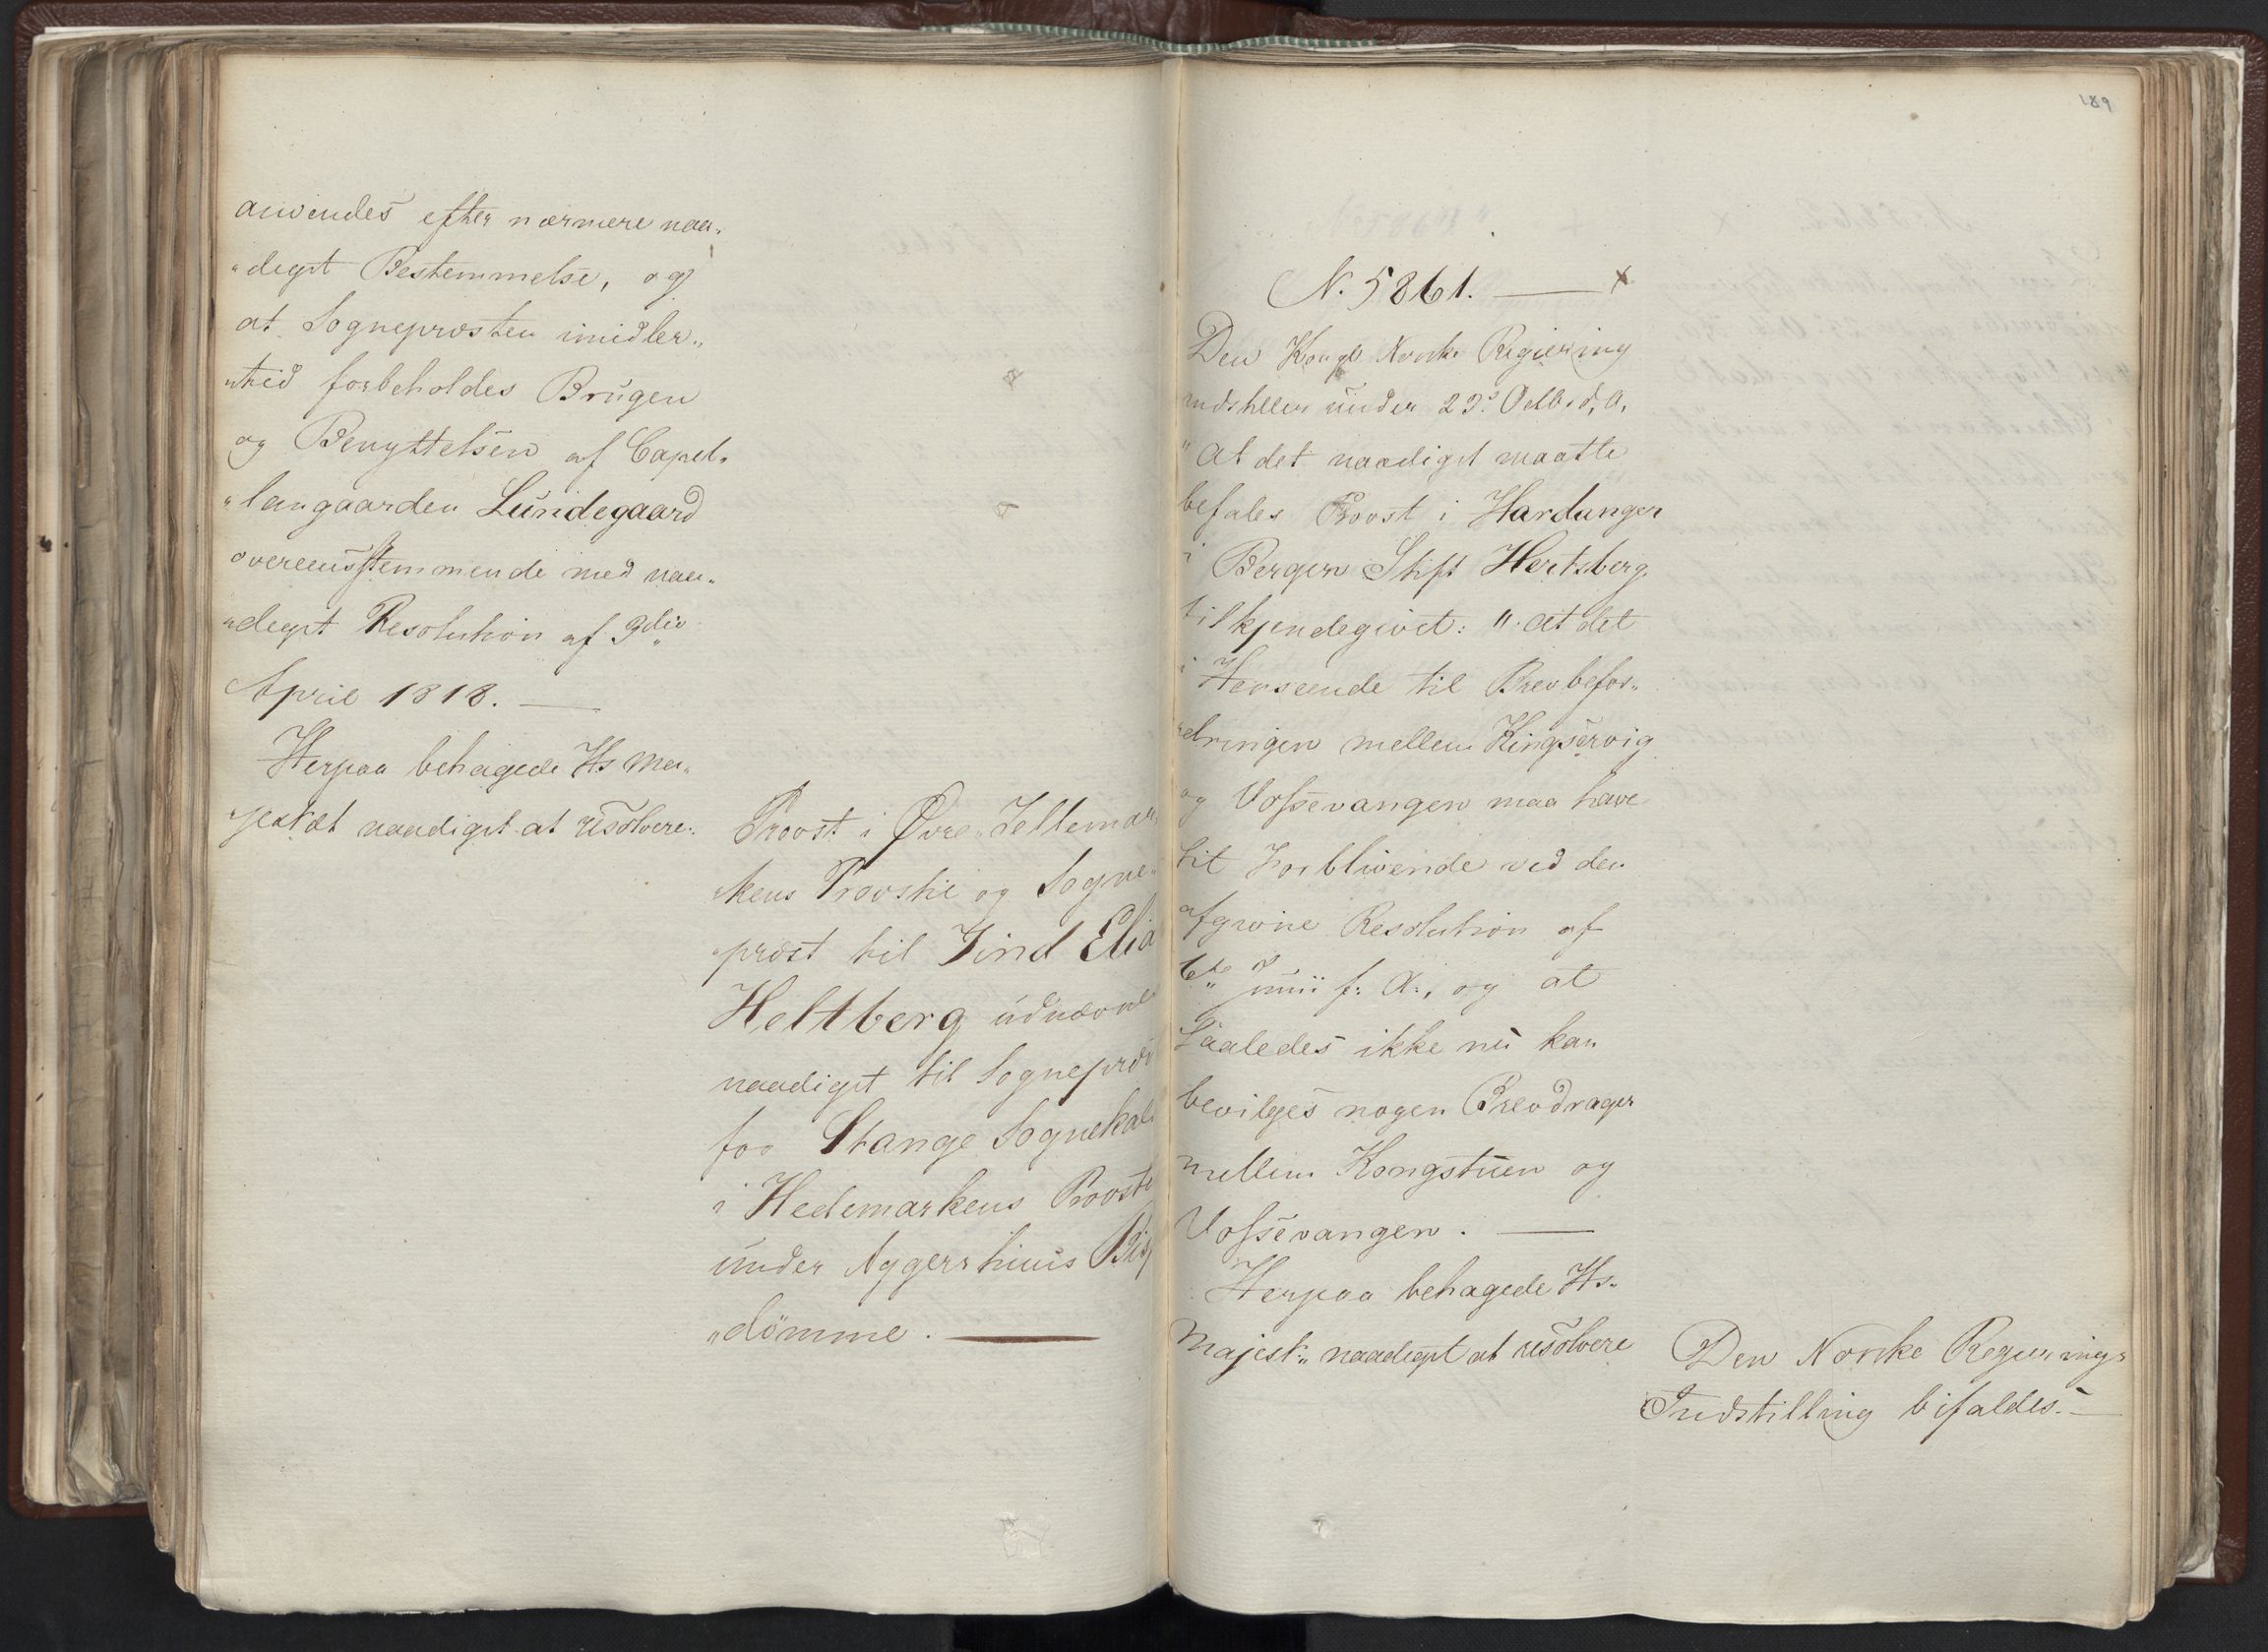 anvendes efter nærmere naa„
„digst Bestemmelse, og
at Sognepræsten imidler„
„tid forbeholdes Brugen
og Benyttelsen af Capel„
„langaarden Lundegaard
overeensstemmende med naa„
„digst Resolution af 9die
April 1818. —
Herpaa behagede Hs Ma„
„jestæt naadigst at resolvere:
Provst i Øvre Tellemar
„kens Provstie og Sogne„
„præst til Sind Elia
Heltberg udnævne
naadigst til Sognepræ
for Stange Sognekal
i Hedemarkens Provstie
under Aggershuus Bisp
„dømme. —
189
N. 5861. — x
Den Kongl Norske Regiering
indstiller under 23de Octbr. d. A.
"At det naadigst maatte
befales Provst i Hardanger
i Bergen Stift Hertzberg
tilkjendegivet: "at det
i Henseende til Brevbefor„
„dringen mellem Kingservig
og Vossevangen maa have
sit Forblivende ved den
afgivne Resolution af
6te Junii f: A:, og at
Saaledes ikke nu kan
bevilges nogen Brevdrager
mellem Kongstuen og
Vossevangen. —
Herpaa behagede Hs„
Majest: naadigst at resolvere
Den Norske Regierings
Indstilling bifaldes. —